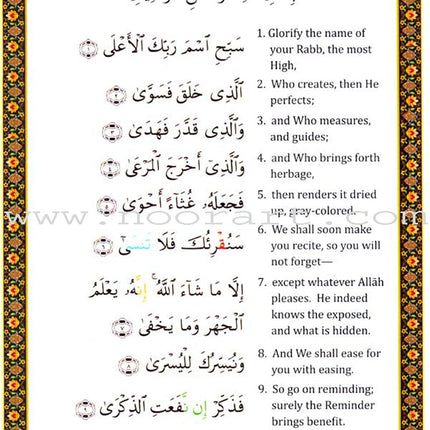 سَبِّحِ ٱسْمَ رَبِّكَ ٱلْأَعْلَى ١
ٱلَّذِى خَلَقَ فَسَوَّىٰ ٢
وَٱلَّذِى قَدَّرَ فَهَدَىٰ ٣
وَٱلَّذِىٓ أَخْرَجَ ٱلْمَرْعَىٰ ٤
فَجَعَلَهُۥ غُثَآءً أَحْوَىٰ ٥
سَنُقْرِئُكَ فَلَا تَنسَىٰٓ ٦
إِلَّا مَا شَآءَ ٱللَّهُ ۚ إِنَّهُۥ يَعْلَمُ
ٱلْجَهْرَ وَمَا يَخْفَىٰ ٧
وَنُيَسِّرُكَ لِلْيُسْرَىٰ ٨
فَذَكِّرْ إِن نَّفَعَتِ ٱلذِّكْرَىٰ ٩
1. Glorify the name of
your Rabb, the most
High,
2. Who creates, then He
perfects;
3. and Who measures,
and guides;
4. and Who brings forth
herbage,
5. then renders it dried
up, gray-colored.
6. We shall soon make
you recite, so you will
not forget—
7. except whatever Allāh
pleases. He indeed
knows the exposed,
and what is hidden.
8. And We shall ease for
you with easing.
9. So go on reminding;
surely the Reminder
brings benefit.
www.noorart.com